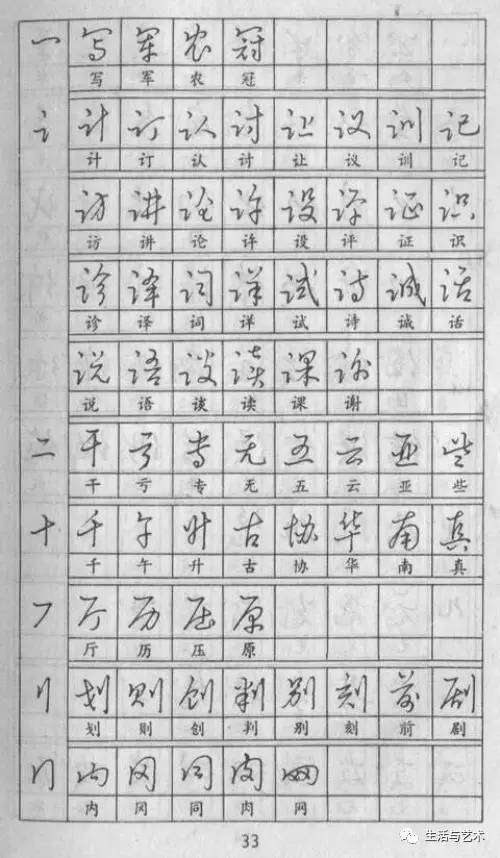 冖 写 军 农 冠
写 军 农 冠
讠 计 订 认 讨 让 议 训 记
计 订 认 讨 让 议 训 记
访 讲 论 许 设 评 证 识
访 讲 论 许 设 评 证 识
诊 译 词 详 试 诗 诚 话
诊 译 词 详 试 诗 诚 话
说 语 谈 读 课 谢
说 语 谈 读 课 谢
二 干 亏 专 无 五 云 亚 些
干 亏 专 无 五 云 亚 些
十 千 午 升 古 协 华 南 真
千 午 升 古 协 华 南 真
厂 厅 历 压 原
厅 历 压 原
刂 划 则 创 判 别 刻 前 剧
划 则 创 判 别 刻 前 剧
冂 内 冈 同 肉 网
内 冈 同 肉 网
33
生活与艺术